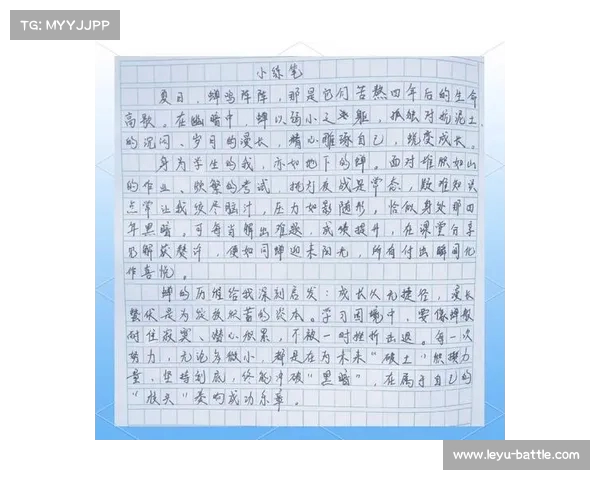 TG: MYYJJPP
小练笔
夏日，蝉鸣阵阵，那是它们苦熬四年后的生命
高歌。在幽暗中，蝉以弱小之躯，孤独对抗泥土
的沉闷、岁月的漫长，精心雕琢自己，蜕变成长。
身为学生的我，亦如地下的蝉。面对堆积如山
的作业、频繁的考试，挑灯夜战是常态，疑难知识
点常让我绞尽脑汁，压力如影随形，恰似身处那四
年黑暗。可每当解出难题，成绩提升，在课堂分享
见解获赞许，便如同蝉迎来阳光，所有付出瞬间化
作喜悦。
蝉的历程给我深刻启发：成长从无捷径，漫长
蛰伏是为 的资本。学习困境中，要像蝉般
耐住寂寞、潜心积累，不被一时挫折击退。每一次
努力，无论多微小，都是在为未来“破土”积攒力
量，坚持到底，终能冲破“黑暗”，在属于自己的
“枝头”奏响成功乐章。
www.leyu-battle.com